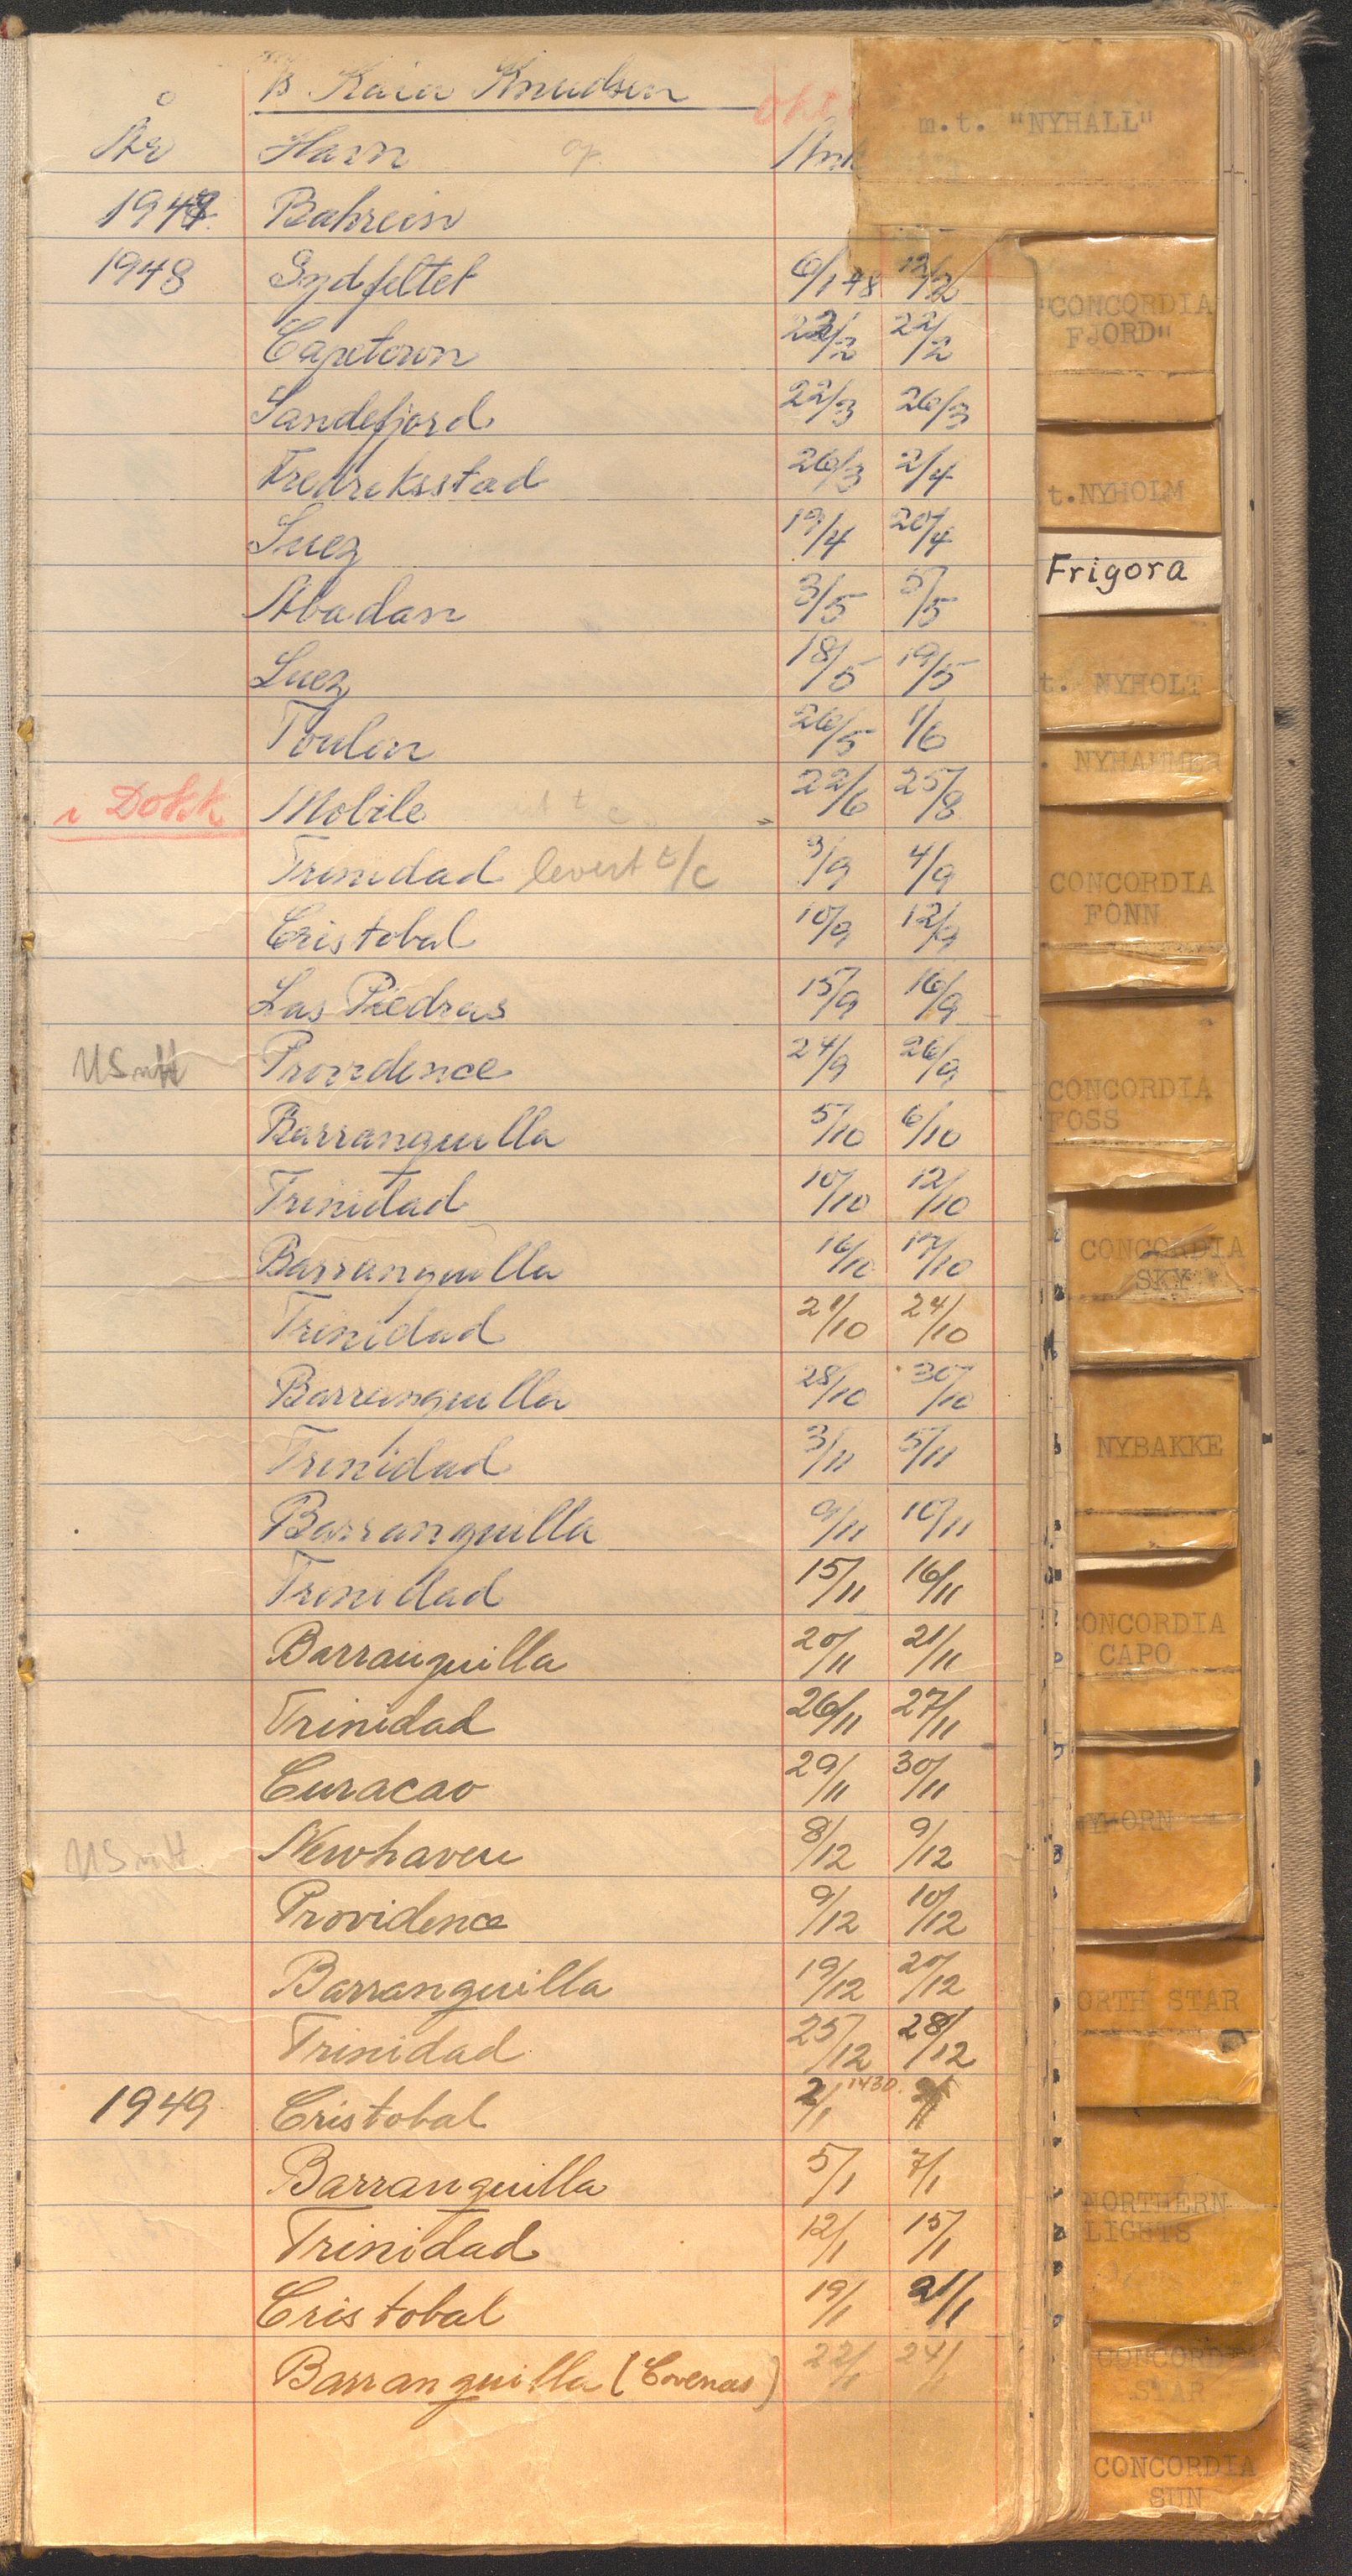 Kaia Knudsen
År Havn
1947 Bahrein
1948 Sydfeltet 6/1 48 12/2
Capetown 22/2 22/2
Sandefjord 22/3 26/3
Fredriksstad 26/3 2/4
Suez 19/4 20/4
Abadan 3/5 5/5
Suez 18/5 19/5
Toulon 26/5 1/6
i Dokk Mobile 22/6 25/8
Trinidad levert t/c 3/9 4/9
Cristobal 10/9 12/9
Las Piedras 15/9 16/9
USNH Providence 24/9 26/9
Barranquilla 5/10 6/10
Trinidad 10/10 12/10
Barranquilla 16/10 17/10
Trinidad 21/10 24/10
Barranquilla 28/10 30/10
Trinidad 3/11 5/11
Barranquilla 9/11 10/11
Trinidad 15/11 16/11
Barranquilla 20/11 21/11
Trinidad 26/11 27/11
Curacao 29/11 30/11
USNH Newhaven 8/12 9/12
Providence 9/12 10/12
Barranquilla 19/12 20/12
Trinidad 25/12 28/12
1949 Cristobal 2/1 1430
Barranquilla 5/1 7/1
Trinidad 12/1 15/1
Cristobal 19/1 21/1
Barranquilla (Covenas) 22/1 24/1
m.t. "NYHALL"
"CONCORDIA
FJORD"
t. NYHOLM
Frigora
t. NYHOLT
NYHAMMER
CONCORDIA
FONN
CONCORDIA
FOSS
CONCORDIA
SKY
NYBAKKE
CONCORDIA
CAPO
NYHORN
NORTH STAR
NORTHERN
LIGHTS
CONCORDIA
STAR
CONCORDIA
SUN